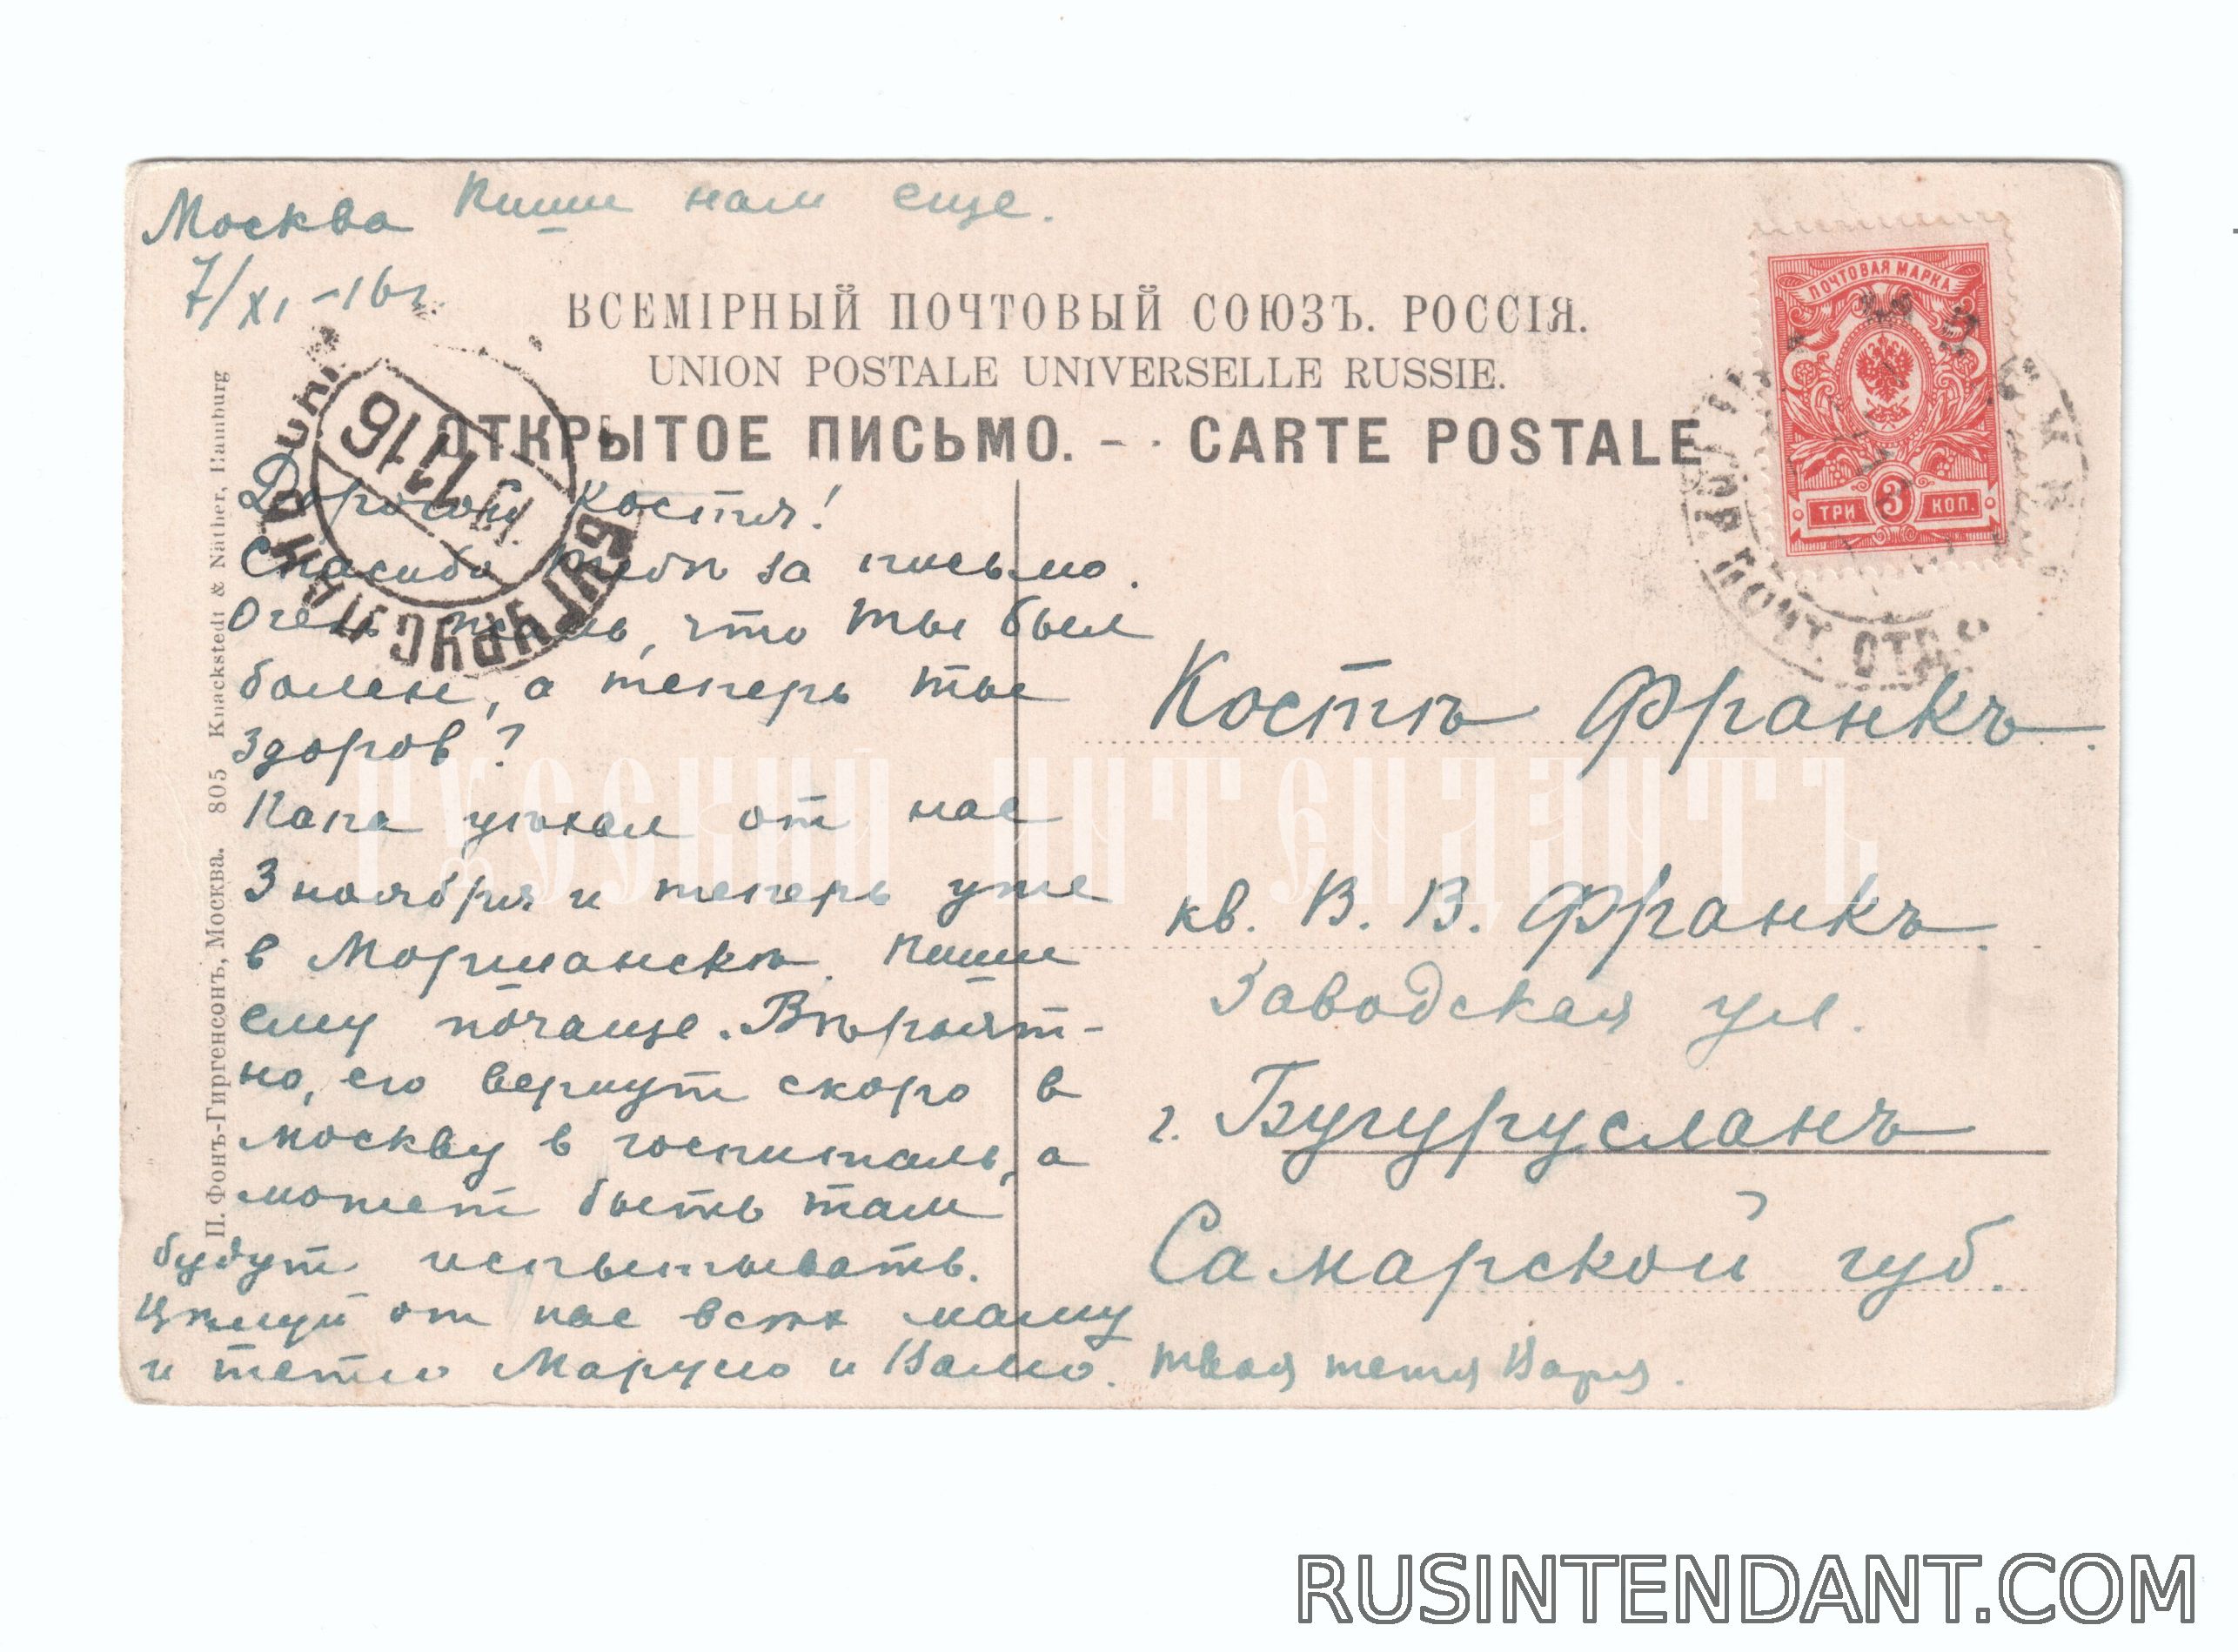 Москва
Пиши нам еще.
7/XI -16г
ВСЕМІРНЫЙ ПОЧТОВЫЙ СОЮЗЪ. РОССІЯ.
UNION POSTALE UNIVERSELLE RUSSIE.
ОТКРЫТОЕ ПИСЬМО. - CARTE POSTALE
Дорогой Костя!
Спасибо тебѣ за письмо.
Очень жаль, что ты был
болен, а теперь ты
здоров?
Папа уѣхал от нас
3 ноября и теперь уже
в Моршанскѣ. Пиши
ему почаще. Вѣроят-
но, его вернут скоро в
Москву в госпиталь, а
может быть там
будут испытывать.
Цѣлуй от нас всѣх маму
и тетю Марусю и Валю.
твоя тетя Варя.
Костѣ Франкъ.
кв. В. В. Франкъ.
Заводская ул.
г. Бугурусланъ
Самарской губ.
ПОЧТОВАЯ МАРКА
ТРИ 3 КОП.
БУГУРУСЛАН
11 16
ПОЧТ. ОТД.
П. Фонъ-Гиргенсонъ, Москва. 805 Knackstedt & Näther, Hamburg
РУССКИЙ ИНТЕНДАНТЪ
RUSINTENDANT.COM